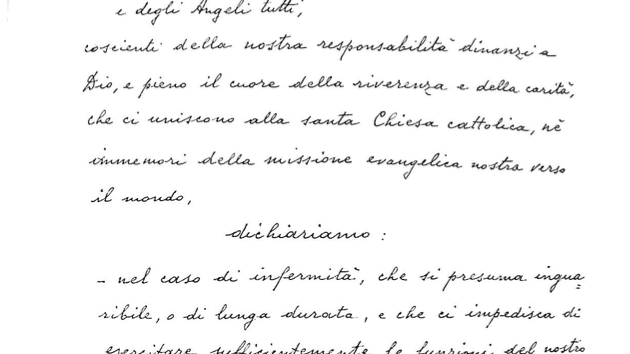 e degli Angeli tutti,
coscienti della nostra responsabilità dinanzi a
Dio, e pieno il cuore della riverenza e della carità,
che ci uniscono alla santa Chiesa cattolica, nè
immemori della missione evangelica nostra verso
il mondo,
dichiariamo:
- nel caso di infermità, che si presuma ingua=
ribile, o di lunga durata, e che ci impedisca di
esercitare sufficientemente le funzioni del nostro